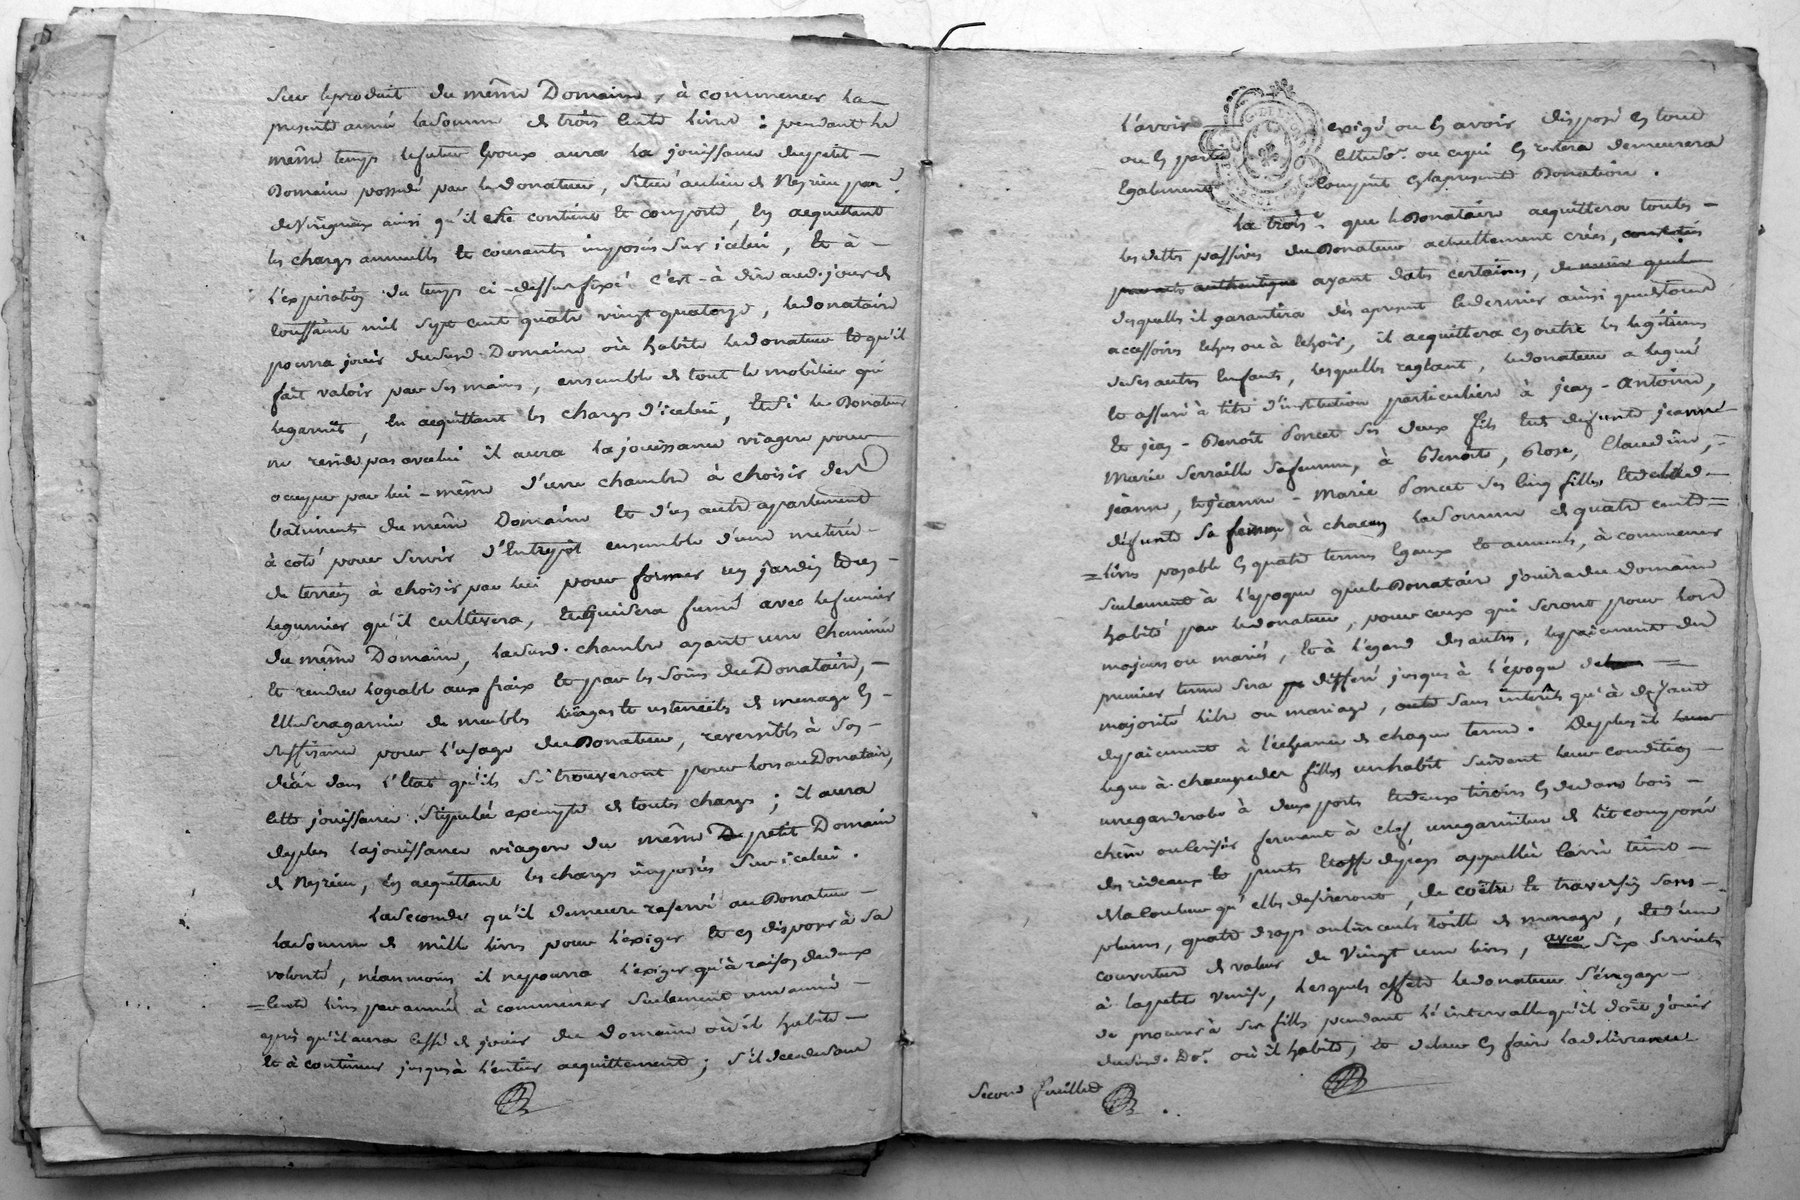 Sur le produit du même Domaine, à commencer la
presente année la somme de trois cents livres : pendant le
même temps le futur Epoux aura la jouissance du petit
Domaine possedé par le donateur, situé au lieu de Neyrieu par.
de Virignieux ainsi qu'il est contient et comporte, en acquittant
les charges annuelles et courants imposés sur icelui, et à
l'expiration du temps ci-dessus fixé c'est-à dire aud. jour de
toussaint mil sept cent quatre vingt quatorze, le donataire
pourra jouir dudud. Domaine où habite le donateur et qu'il
fait valoir par ses mains, ensemble de tout le mobilier qui
le garnit, en acquittant les charges d'icelui, et si le Donateur
ne reside pas avec lui il aura la jouissance viagere pour
occuper par lui-même d'une chambre à choisir des
bâtiments du même Domaine et d'un autre apartement
à coté pour servir d'Entrepôt ensemble d'une meterée
de terrein à choisir par lui pour former un jardin
legumier qu'il cultivera, fumé avec le fumier
du même Domaine, lasusd. chambre ayant une cheminée
et rendue logeable aux fraix et par les soins du Donataire,
Elle sera garnie de meubles linges et ustenciles de menage en
suffisance pour l'usage du Donateur, reversibles à son
décès dans l'Etat qu'ils se trouveront pour lors au Donataire,
cette jouissance stipulée exempte de toutes charges ; il aura
de plus la jouissance viagere du même petit Domaine
de Neyrieu, en acquittant les charges imposées sur icelui.
La seconde qu'il demeure reservé au Donateur
la somme de mille livres pour l'exiger et en disposer à sa
volonté, néanmoins il ne pourra l'exiger qu'à raison de deux
= cents livres par année à commencer seulement une année
après qu'il aura cessé de jouir du Domaine où il habite
et à continuer jusqu'à l'entier acquittement ; s'il decede sans
l'avoir exigé ou en avoir disposé en tout
ou en partie ou ce qui en restera demeurera
Egalement compris en la presente Donation.
La trois.e que le Donataire acquittera toutes
les dettes passives du Donateur actuellement créés,
par acte authentique ayant dates certaines,
desquelles il garantira dès apresent le dernier ainsi que de tous
accessoires echus ou à echoir, il acquittera en outre les légitimes
de ses autres Enfants, lesquelles reglant, le donateur a legué
et assuré à titre d'institution particuliere à jean-Antoine,
et jean-Benoit Poncet ses deux fils et defunte jeanne
Marie Serraille sa femme, à Benoite, Rose, Claudine,
jeanne, et jeanne-Marie Poncet ses cinq filles et de lad.
défunte sa femme à chacun la somme de quatre cents =
= livres payable en quatre termes Egaux et annuels, à commencer
seulement à l'epoque que le Donataire jouira du domaine
habité par le donateur, pour ceux qui seront pour lors
majeurs ou mariés, et à l'égard des autres, le paiement du
premier terme sera differé jusques à l'époque de
majorité libre ou mariage, sans interêts qu'à defaut
de paiement à l'échéance de chaque terme. De plus il
legue à chacune des filles un habit suivant leur condition
une garderobe à deux portes et deux tiroirs en dedans bois
chêne ou cerisier fermant à clef une garniture de lit composée
des rideaux et pents Etoffe du pays appellée teint
de la couleur qu'elles desireront, de coêtre et traversin sans
plumes, quatre draps toille de menage, et d'une
couverture de valeur de Vingt une livres, avec six serviettes
à la petite Venise, lesquels effets le donateur s'engage
de procurer à ses filles pendant l'intervalle qu'il doit jouir
dudud. Do.e où il habite, et de leur en faire la delivrance
Second feuillet